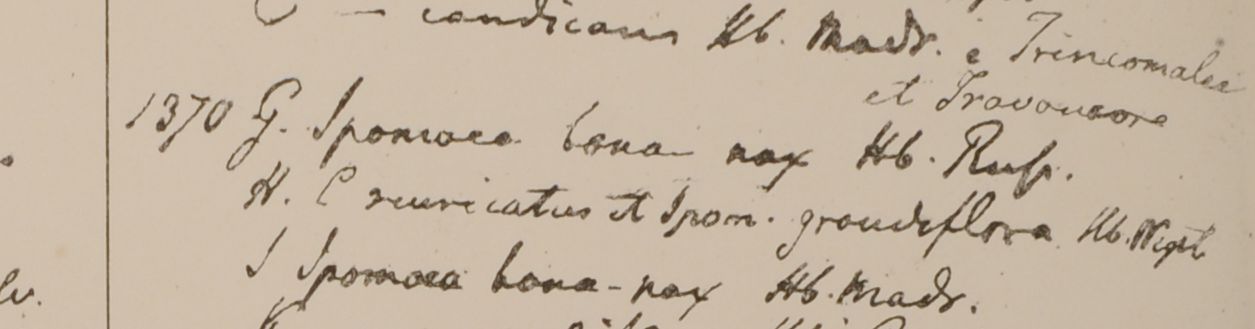 C — candicans Hb. Madr. e Trincomalee
et Travancore
1370 G. Ipomoea bona nox Hb. Russ.
H. C muricatus et Ipom. grandiflora Hb. Wight
I Ipomoea bona-nox Hb. Madr.